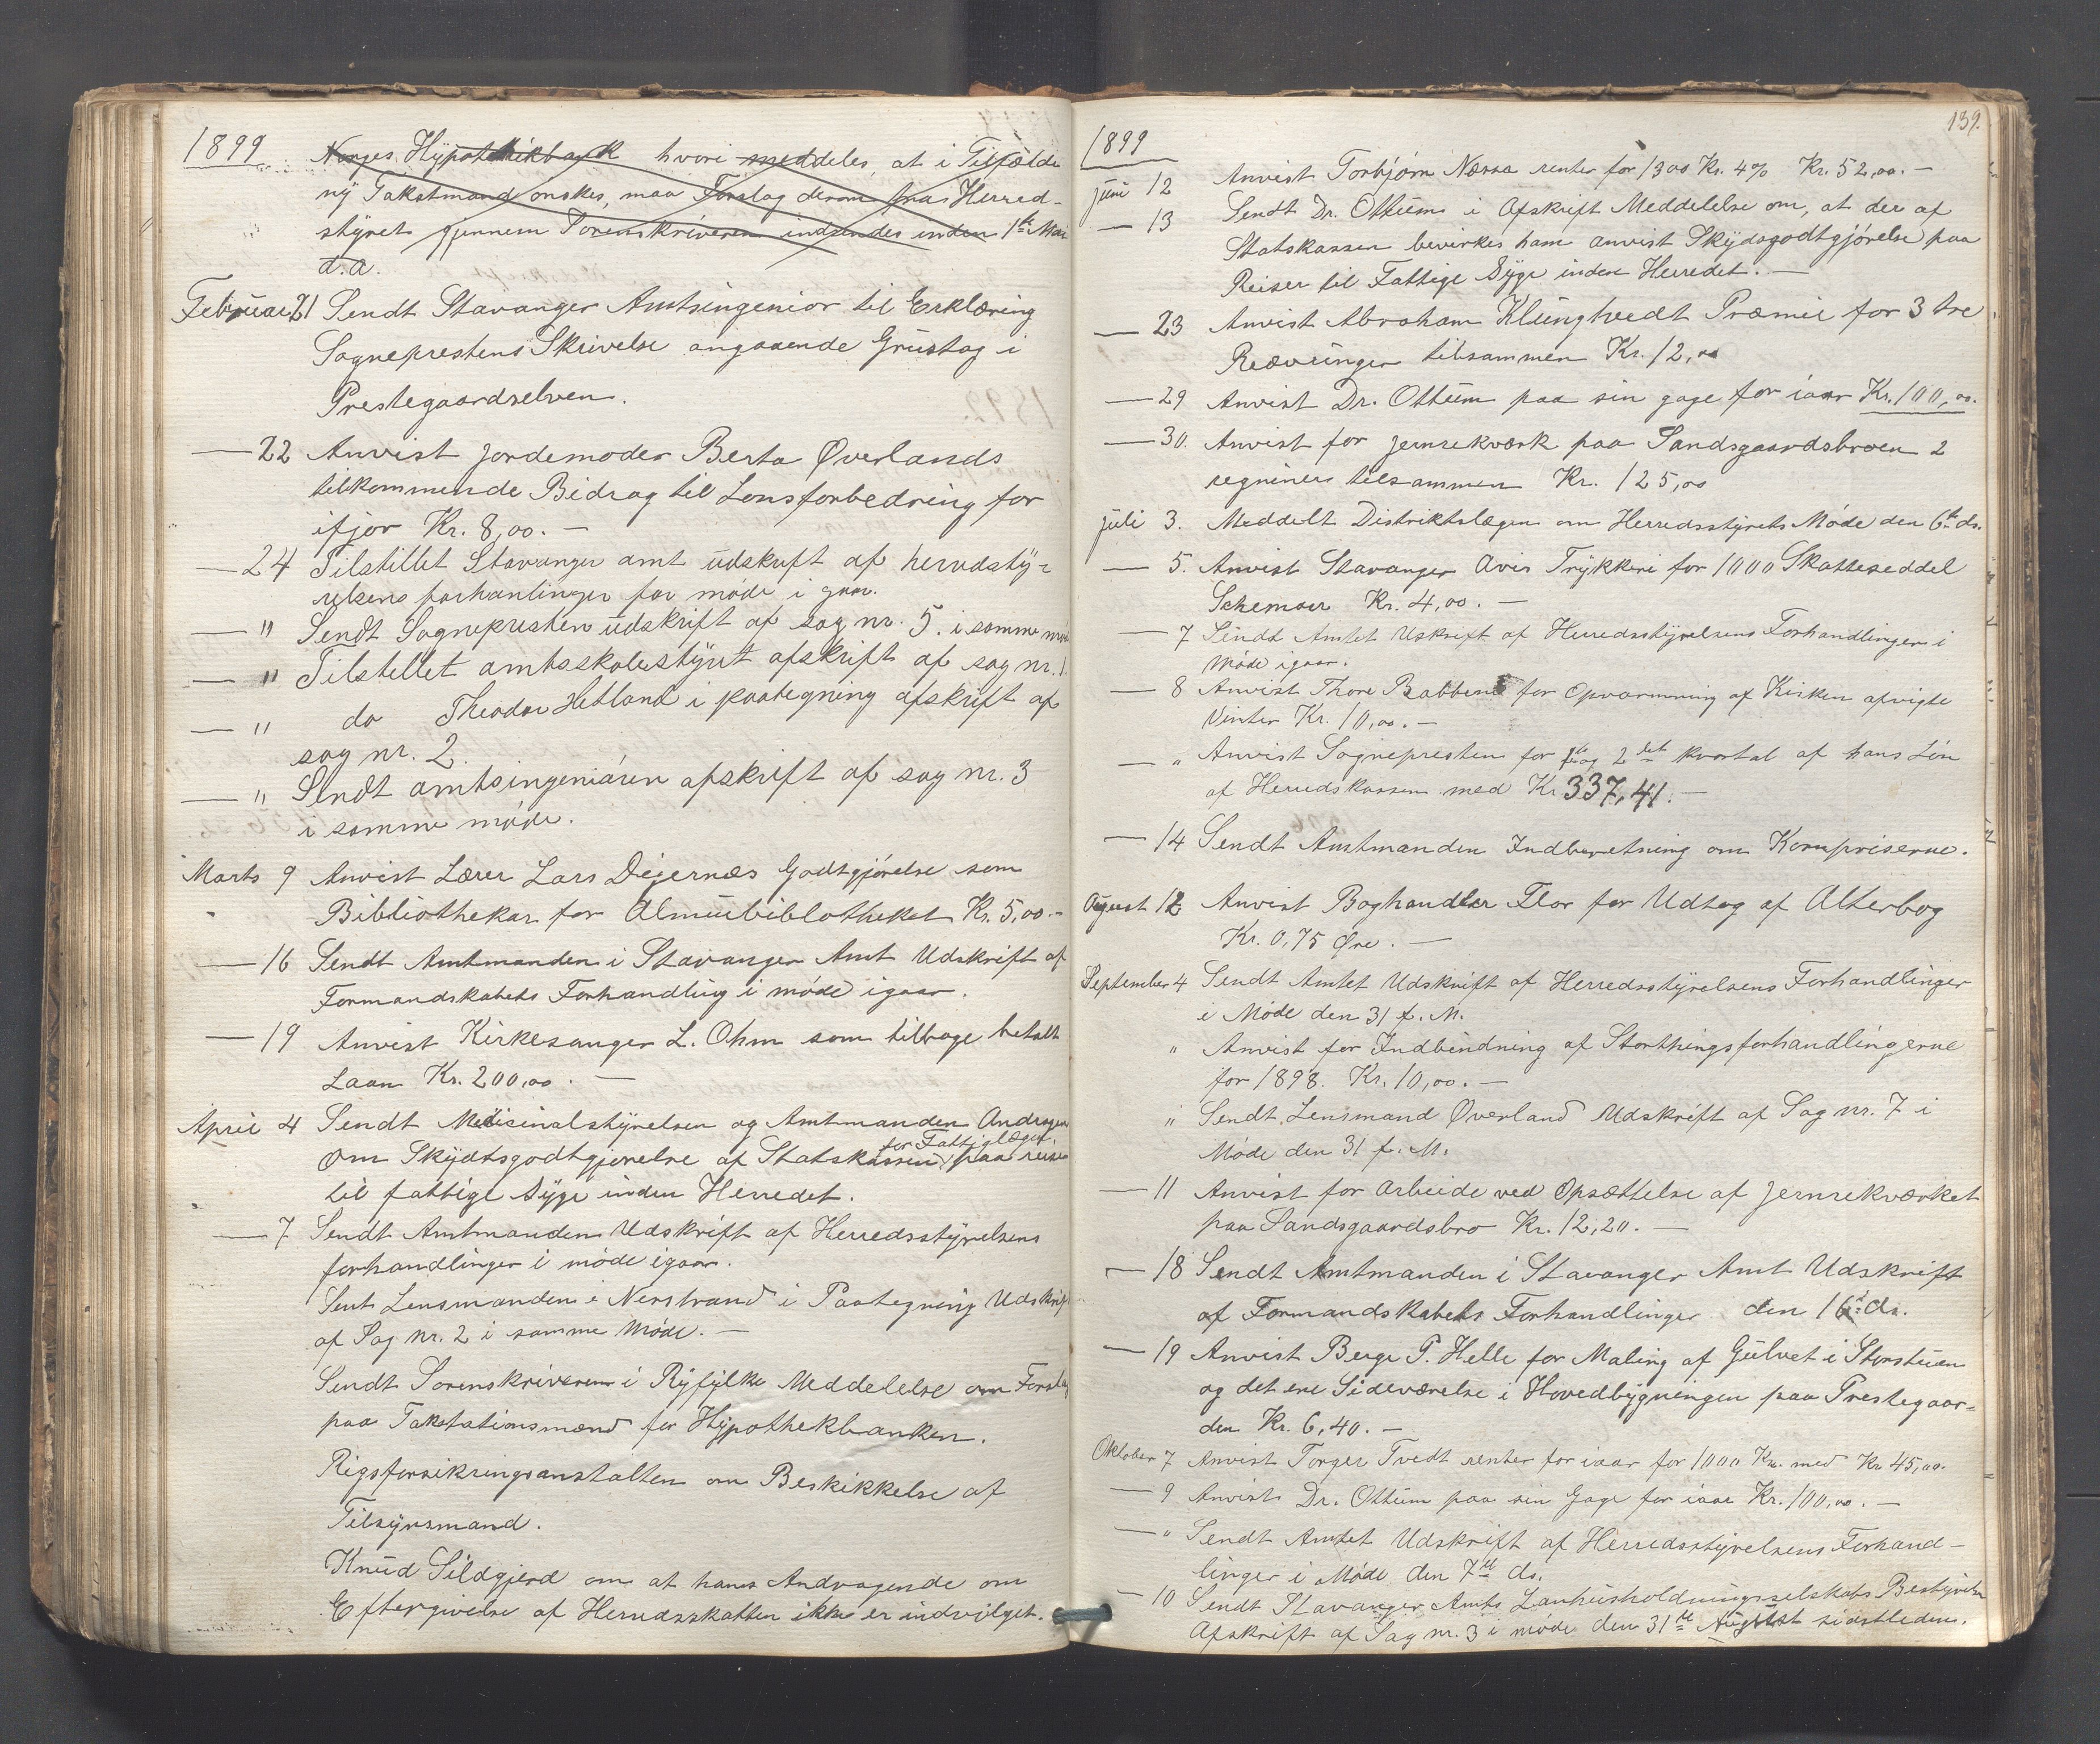 1899
Norges Hypothekbank hvori meddeles, at i Tilfælde
ny Takstmand ønskes, maa Forslag derom fra Herred-
styret gjennem Sorenskriveren indsendes inden 1ste Mai
d.a.
Februar 21 Sendt Stavanger Amtsingeniør til Erklæring
Sogneprestens Skrivelse angaaende Grustag i
Prestegaardselven.
— 22 Anvist Jordemoder Berta Øverlands
tilkommende Bidrag til Lønsforbedring for
ifjor Kr. 8,00. —
— 24 Tilstillet Stavanger amt udskrift af herredsty-
relsens forhanlinger for møde i gaar.
— " Sendt Sognepresten udskrift af sag nr. 5. i samme møde
— " Tilstillet amtsskolestyret afskrift af sag nr. 1.
— " do Theodor Hetland i paategning afskrift af
sag nr. 2.
— " Sendt amtsingeniøren afskrift af sag nr. 3
i samme møde.
Marts 9 Anvist Lærer Lars Dejernæs Godtgjørelse som
Bibliothekar for Almuebiblotheket Kr. 5,00.-
— 16 Sendt Amtmanden i Stavanger Amt Udskrift af
Formandskabets Forhandling i møde igaar.
— 19 Anvist Kirkesanger L. Ohm som tilbage betalt
Laan Kr. 200,00. —
April 4 Sendt Medicinalstyrelsen og Amtmanden Andragen
for Fattiglægen,
om Skydtsgodtgjørelse af Statskassen paa reise
til fattige Syge inden Herredet.
— 7 Sendt Amtmanden Udskrift af Herredsstyrelsens
forhandlinger i møde igaar.
Sent Lensmanden i Nerstrand i Paategning Udskrift
af Sag nr. 2 i samme Møde. —
Sendt Sorenskriveren i Ryfylke Meddelelse om Forslag
paa Takstationsmænd for Hypothekbanken.
Rigsforsikringsanstalten om Beskikkelse af
Tilsynsmand.
Knud Sildgjerd om at hans Andragende om
Eftergivelse af Herredsskatten ikke er indvilget.
139.
1899
Juni 12 Anvist Torbjørn Næssa renter for 1300 Kr. 4% Kr. 52,00. —
— 13 Sendt Dr. Ottums i Afskrift Meddelelse om, at der af
Statskassen bevirkes ham anvist Skydsgodtgjørelse paa
Reiser til Fattige Syge inden Herredet. —
— 23 Anvist Abraham Klungtvedt Præmie for 3 tre
Ræveunger tilsammen Kr. 12,00
— 29 Anvist Dr. Ottum paa sin gage for iaar Kr. 100,00.
— 30. Anvist for jernrekværk paa Sandsgaardsbroen 2
regniner tilsammen Kr. 125,00
Juli 3. Meddelt Distriktslægen om Herredsstyrets Møde den 6te ds.
— 5. Anvist Stavanger Avis Trykkeri for 1000 Skatteseddel
Schemaer Kr. 4,00. —
— 7 Sendt Amtet Uskrift af Herredsstyrelsens Forhandlinger i
Møde igaar.
— 8 Anvist Thore Babbene for Opvarmning af Kirken afvigte
Vinter Kr. 10,00. —
— " Anvist Sognepresten for 1ste og 2det kvartal af hans Løn
af Herredskassen med Kr 337,41. —
— 14 Sendt Amtmanden Indberetning om Kornpriserne.
August 12 Anvist Boghandler Flor for Udtog af Alterbog
Kr. 0,75 Øre. —
September 4 Sendt Amtet Udskrift af Herredsstyrelsens Forhandlinger
i Møde den 31 f. M.
" Anvist for Indbindning af Storthingsforhandlingerne
for 1898. Kr. 10,00. —
" Sendt Lensmand Øverland Udskrift af Sag nr. 7 i
Møde den 31 f. M.
— 11 Anvist for Arbeide ved Opsættelse af Jernrekværket
paa Sandsgaardsbro Kr. 12,20. —
— 18 Sendt Amtmanden i Stavanger Amt Udskrift
af Formandskabets Forhandlinger den 16de ds.
— 19 Anvist Berge P. Helle for Maling af Gulvet i Storstuen
og det ene Sideværelse i Hovedbygningen paa Prestegaar-
den Kr. 6,40. —
Oktober 7 Anvist Torger Tvedt renter for iaar for 1000 Kr. med Kr 45,00.
— 9 Anvist Dr. Ottum paa sin Gage for iaar Kr. 100,00. —
— " Sendt Amtet Udskrift af Herredsstyrelsens Forhand-
linger i Møde den 7de ds.
— 10 Sendt Stavanger Amts Lanhusholdningsselskabs Bestyrelse
Afskrift af Sag nr. 3 i møde den 31te August sidstleden.